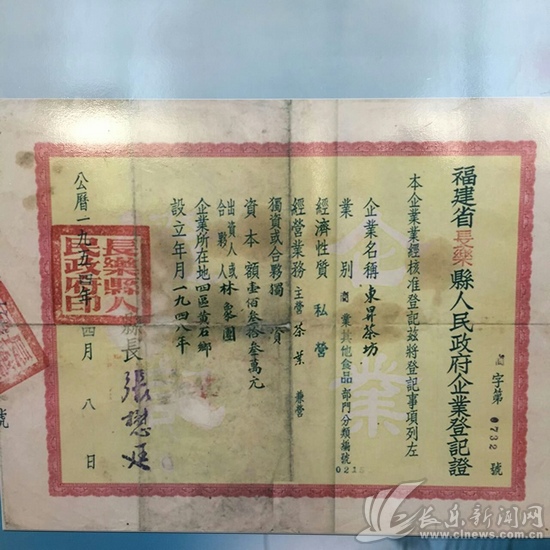 福建省長樂縣人民政府企業登記證
字第0732號
本企業業經核准登記茲將登記事項列左
企業名稱 東昇茶坊
業別 商業其他食品部門分類編號
經濟性質 私營
經營業務 主營茶葉 兼營
獨資或合夥 獨資
資本額 壹佰叁拾叁萬元
出資人或合夥人 林家團
企業所在地 四區黃石鄉
設立年月 一九四八年
縣長 張懋廷
公曆一九五四年四月八日
長樂縣人民政府印
企業
號
长乐新闻网
www.clnews.com.cn